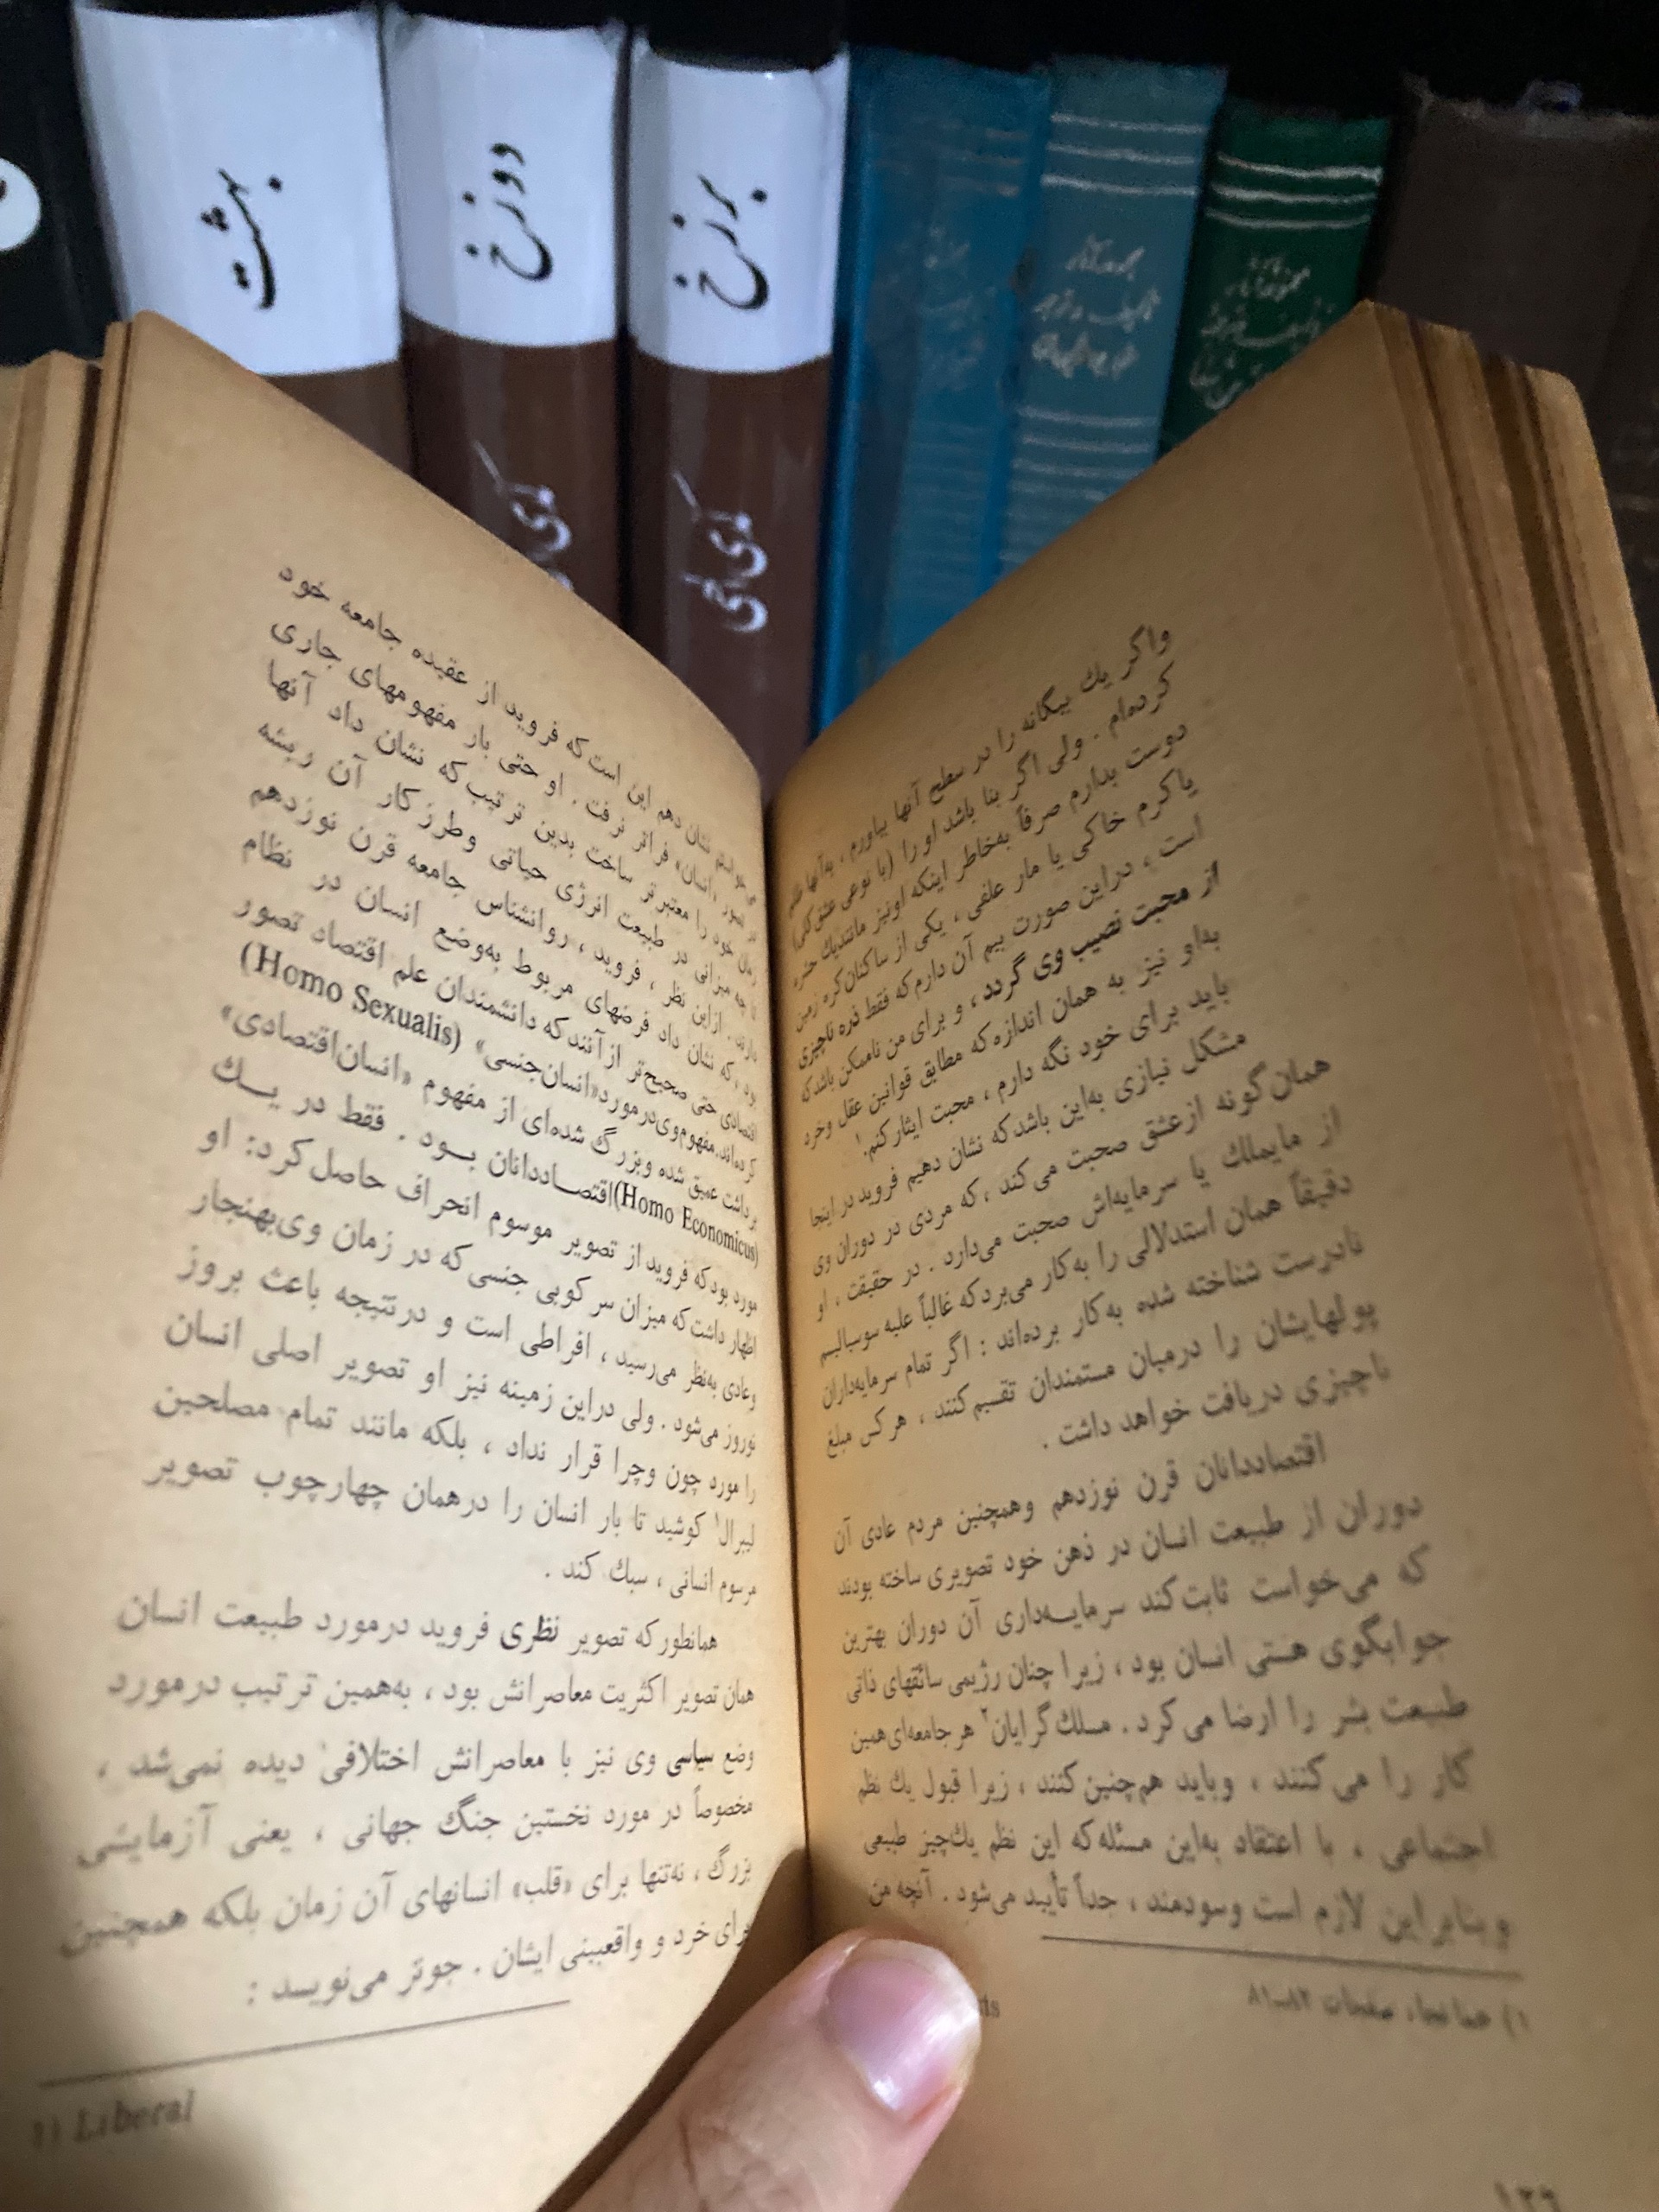 بهشت
دوزخ
برزخ
کمدی الهی
واگر یك بیگانه را در سطح آنها بیاورم ، به‌آنها ظلم
کرده‌ام . ولی اگر بنا باشد او را (با نوعی عشق کلی)
دوست بدارم صرفاً به‌خاطر اینکه اونیز مانندیك حشره
یاکرم خاکی یا مار علفی ، یکی از ساکنان‌کره زمین
است ، دراین صورت بیم آن دارم‌که فقط ذره ناچیزی
از محبت نصیب وی گردد ، و برای من ناممکن باشدکه
بداو نیز به همان اندازه‌که مطابق قوانین عقل وخرد
باید برای خود نگه دارم ، محبت ایثارکنم.۱
مشکل نیازی به‌این باشدکه نشان دهیم فروید در اینجا
همان‌گونه ازعشق صحبت می‌کند ، که مردی در دوران وی
از مایملك یا سرمایه‌اش صحبت می‌دارد . در حقیقت ، او
دقیقاً همان استدلالی را به‌کار می‌بردکه غالباً علیه سوسیالیسم
نادرست شناخته شده به‌کار برده‌اند : اگر تمام سرمایه‌داران
پولهایشان را درمیان مستمندان تقسیم‌کنند ، هرکس مبلغ
ناچیزی دریافت خواهد داشت .
اقتصاددانان قرن نوزدهم وهمچنین مردم عادی آن
دوران از طبیعت انسان در ذهن خود تصویری ساخته بودند
که می‌خواست ثابت‌کند سرمایــه‌داری آن دوران بهترین
جوابگوی هستی انسان بود ، زیرا چنان رژیمی سائقهای ذاتی
طبیعت بشر را ارضا می‌کرد . مسلك‌گرایان۲ هر جامعه‌ای‌همین
کار را می‌کنند ، وباید هم‌چنین‌کنند ، زیرا قبول یك نظم
اجتماعی ، با اعتقاد به‌این مسئله‌که این نظم یك‌چیز طبیعی
وبنابراین لازم است وسودمند ، جداً تأیید می‌شود . آنچه من
۱) همانجا، صفحات ۸۲–۸۱
۱۲۹
نشان دهم این است که فروید از عقیده جامعه خود
«انسان» فراتر نرفت . او حتی بار مفهومهای جاری
زمان خود را معتبرتر ساخت بدین ترتیب که نشان داد آنها
تا چه میزانی در طبیعت انرژی حیاتی وطرزکار آن ریشه
دارند . ازاین نظر ، فروید ، روانشناس جامعه قرن نوزدهم
بود ، که نشان داد فرضهای مربوط به‌وضع انسان در نظام
اقتصادی حتی صحیح‌تر از آنندکه دانشمندان علم اقتصاد تصور
کرده‌اند.مفهوم‌وی‌درمورد«انسان‌جنسی» (Homo Sexualis)
برداشت عمیق شده وبزرگ شده‌ای از مفهوم «انسان‌اقتصادی»
(Homo Economicus)اقتصــاددانان بــود . فقط در یــك
مورد بودکه فروید از تصویر موسوم انحراف حاصل‌کرد: او
اظهار داشت‌که میزان سرکوبی جنسی‌که در زمان وی‌بهنجار
وعادی به‌نظر می‌رسید ، افراطی است و درنتیجه باعث بروز
نوروز می‌شود . ولی دراین زمینه نیز او تصویر اصلی انسان
را مورد چون وچرا قرار نداد ، بلکه مانند تمام مصلحین
لیبرال۱ کوشید تا بار انسان را درهمان چهارچوب تصویر
مرسوم انسانی ، سبك کند .
همانطورکه تصویر نظری فروید درمورد طبیعت انسان
همان تصویر اکثریت معاصرانش بود ، به‌همین ترتیب درمورد
وضع سیاسی وی نیز با معاصرانش اختلافی دیده نمی‌شد ،
مخصوصاً در مورد نخستین جنگ جهانی ، یعنی آزمایشی
بزرگ ، نه‌تنها برای «قلب» انسانهای آن زمان بلکه همچنین
برای خرد و واقعبینی ایشان . جونز می‌نویسد :
۱) Liberal